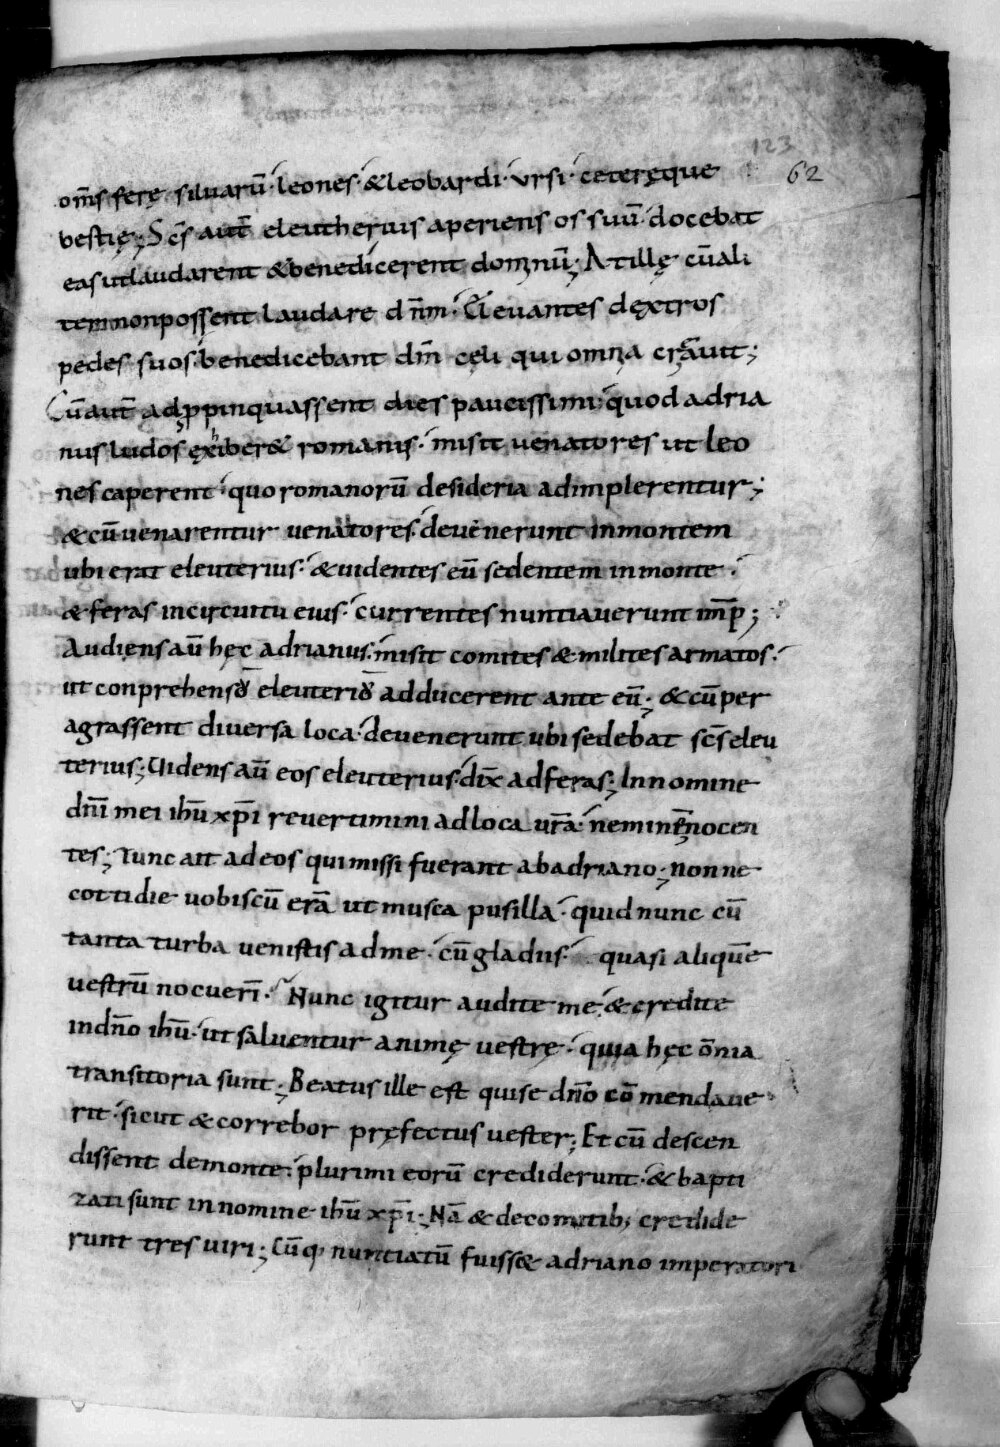 123
62
om̄s ferę siluarū· leones· &leobardi· ursi· ceteręque
bestię; Sc̄s aut̄ eleutherius aperiens os suū· docebat
eas utlaudarent &benedicerent dominū; Atillę cūali
tem nonpossent laudare dn̄m· Eleuantes dęxtros
pedes suos· benedicebant dm̄ cęli qui omnia creauit;
Cūaut̄ adpropinquassent dies paucissimi· quod adria
nus ludos ęxhiber& romanis· misit uenatores ut leo
nes caperent· quo romanorū desideria adimplerentur;
&cūuenarentur uenatores· deuenerunt inmontem
ubi erat eleuterius· &uidentes eū sedentem inmonte·
&feras incircuitu eius· currentes nuntiauerunt imp̄;
Audiens aū hęc adrianus· misit comites &milites armatos·
ut conprehensū eleuteriū adducerent ante eū; &cūper
agrassent diuersa loca· deuenerunt ubi sedebat sc̄s eleu
terius; Uidens aū eos eleuterius· dix̄ adferas; Innomine
dn̄i mei ihū xp̄i reuertimini adloca ur̄a· neminē nocen
tes; Tunc ait adeos qui missi fuerant abadriano; nonne
cottidie uobiscū erā ut musca pusilla· quid nunc cū
tanta turba uenistis adme· cūgladiis· quasi aliquē
uestrū nocuerī· Nunc igitur audite me· &credite
indn̄o ihū· ut saluentur animę uestrę· quia hęc om̄ia
transitoria sunt; Beatus ille est quise dn̄o cōmendaue
rit· sicut &correbor pręfectus uester; Et cū descen
dissent demonte· plurimi eorū crediderunt· &bapti
zati sunt innomine ihū xp̄i; Nā &decomitib; credide
runt tres uiri; Cūq· nuntiatū fuiss& adriano imperatori